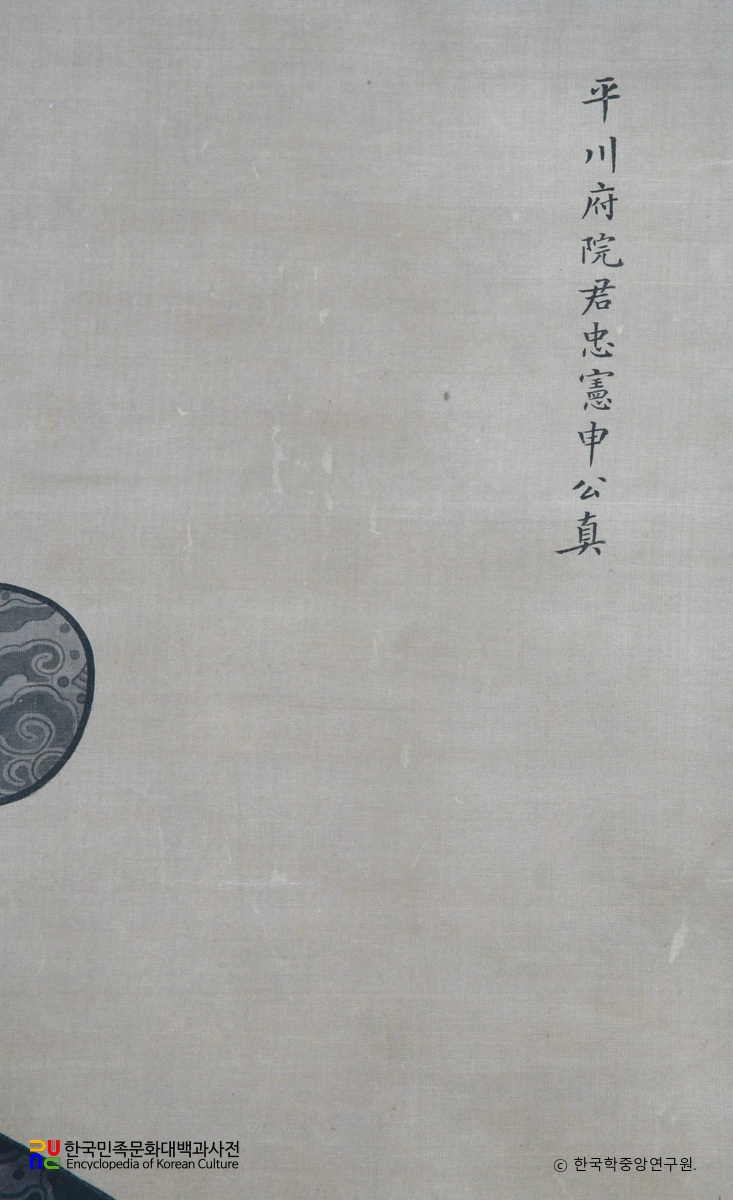 平川府院君忠憲申公真
한국민족문화대백과사전
Encyclopedia of Korean Culture
ⓒ 한국학중앙연구원.